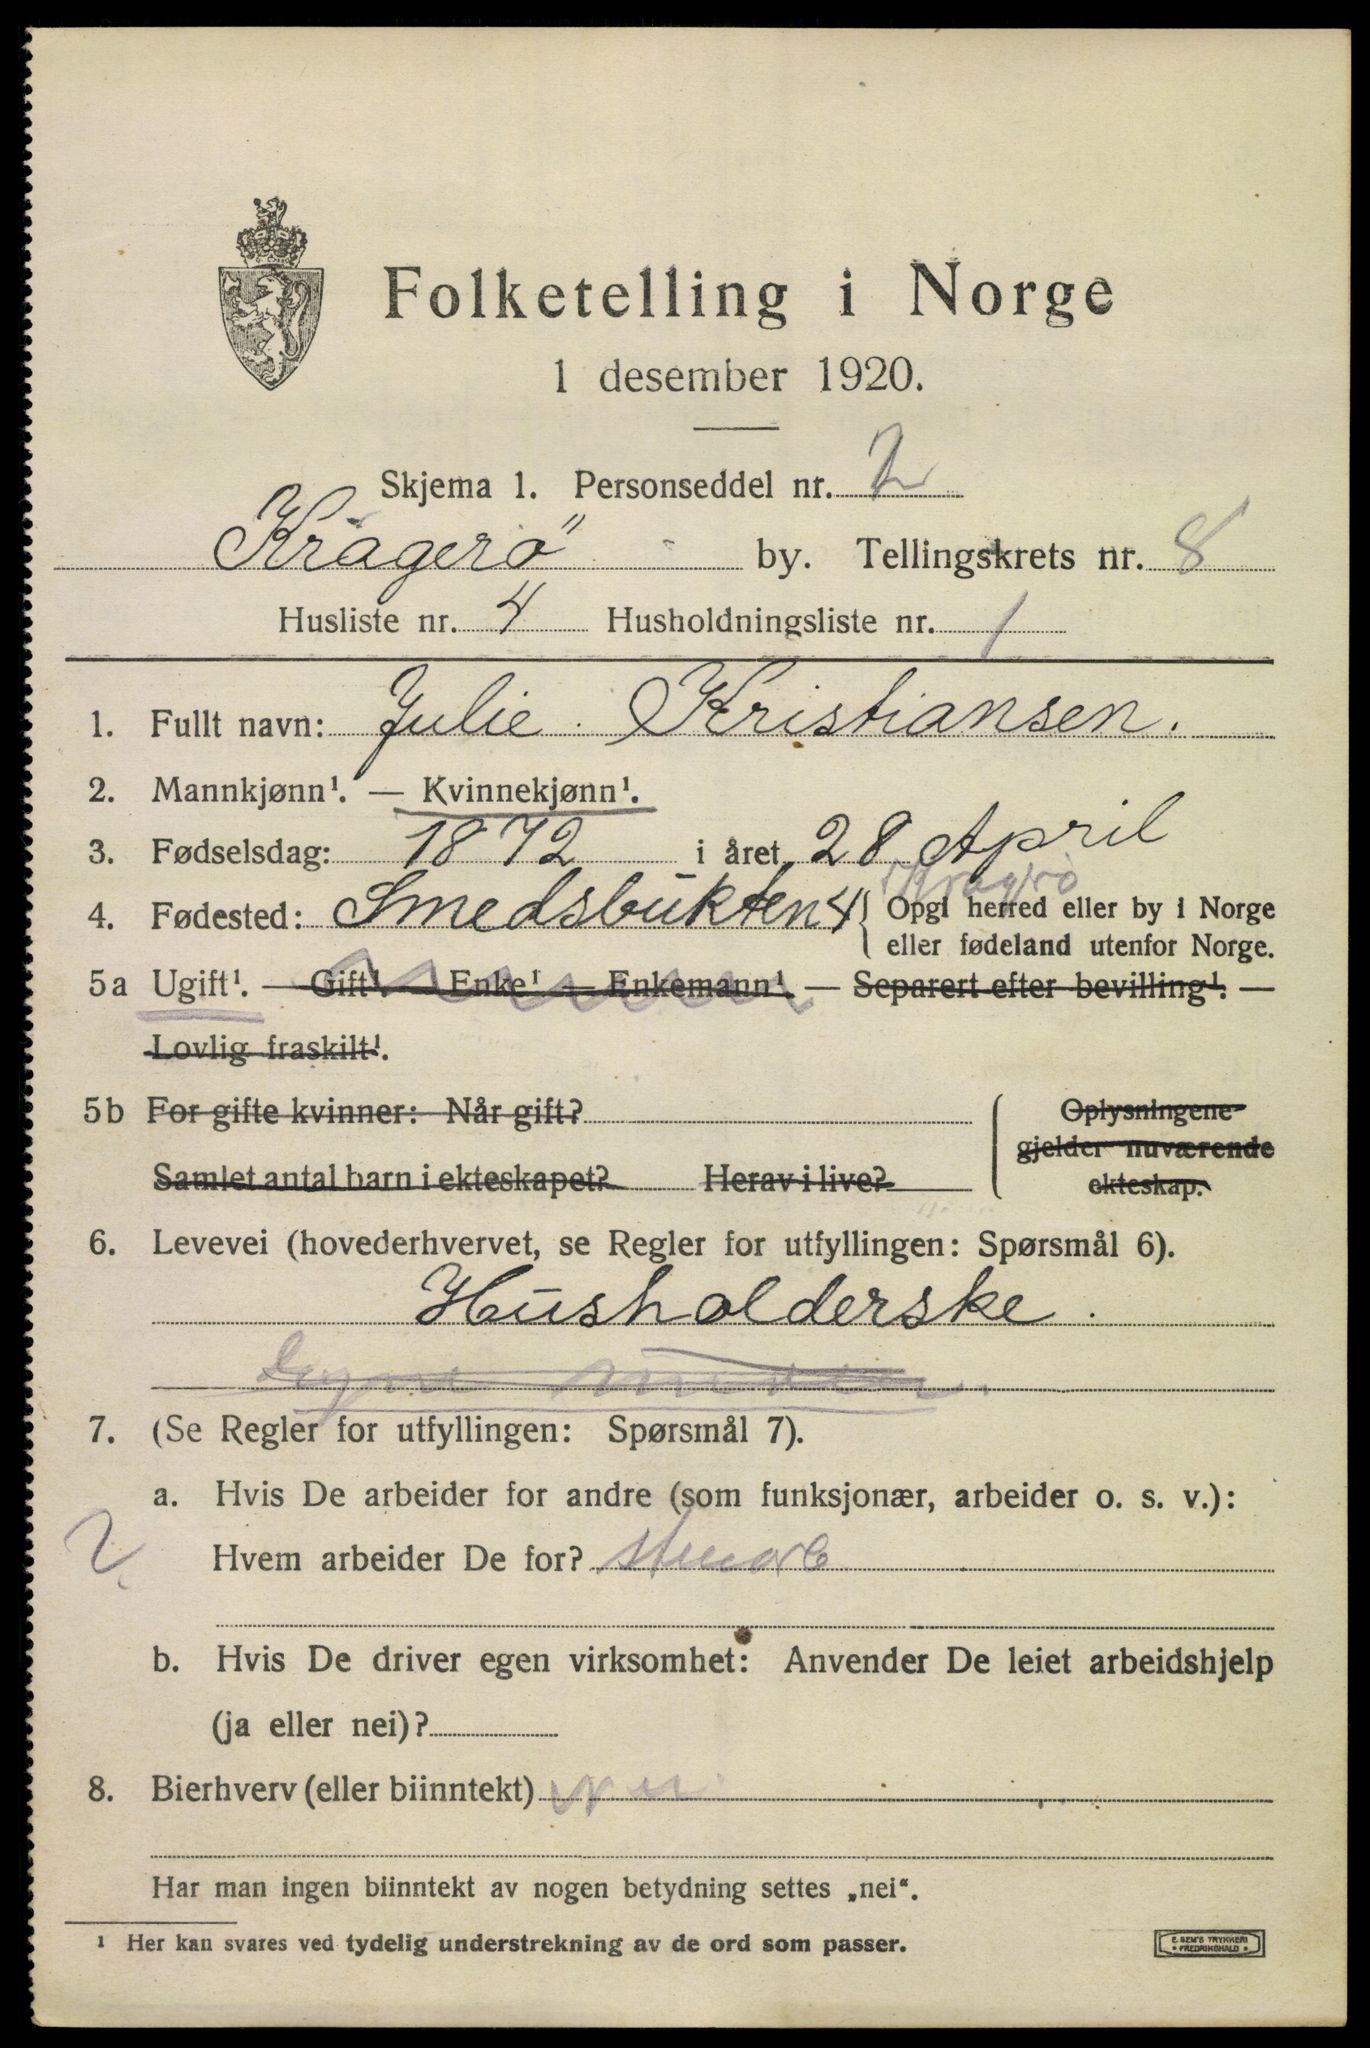 Folketelling i Norge
1 desember 1920.
Skjema 1. Personseddel nr. 2
Kragerö by. Tellingskrets nr. 8
Husliste nr. 4 Husholdningsliste nr. 1
1. Fullt navn: Julie Kristiansen.
2. Mannkjønn¹. — Kvinnekjønn¹.
3. Fødselsdag: 1872 i året 28 April
Kragerö
4. Fødested: Smedsbukten 4 { Opgi herred eller by i Norge
eller fødeland utenfor Norge.
5a Ugift¹. — Gift¹. — Enke¹ — Enkemann¹. — Separert efter bevilling¹. —
Lovlig fraskilt¹.
5b For gifte kvinner: Når gift? { Oplysningene
gjelder nuværende
Samlet antal barn i ekteskapet? Herav i live? ekteskap.
6. Levevei (hovederhvervet, se Regler for utfyllingen: Spørsmål 6).
Husholderske.
7. (Se Regler for utfyllingen: Spørsmål 7).
a. Hvis De arbeider for andre (som funksjonær, arbeider o. s. v.):
Hvem arbeider De for?
b. Hvis De driver egen virksomhet: Anvender De leiet arbeidshjelp
(ja eller nei)?
8. Bierhverv (eller biinntekt)
Har man ingen biinntekt av nogen betydning settes „nei“.
¹ Her kan svares ved tydelig understrekning av de ord som passer.
E. SEM'S TRYKKERI
• FREDRIKSHALD •